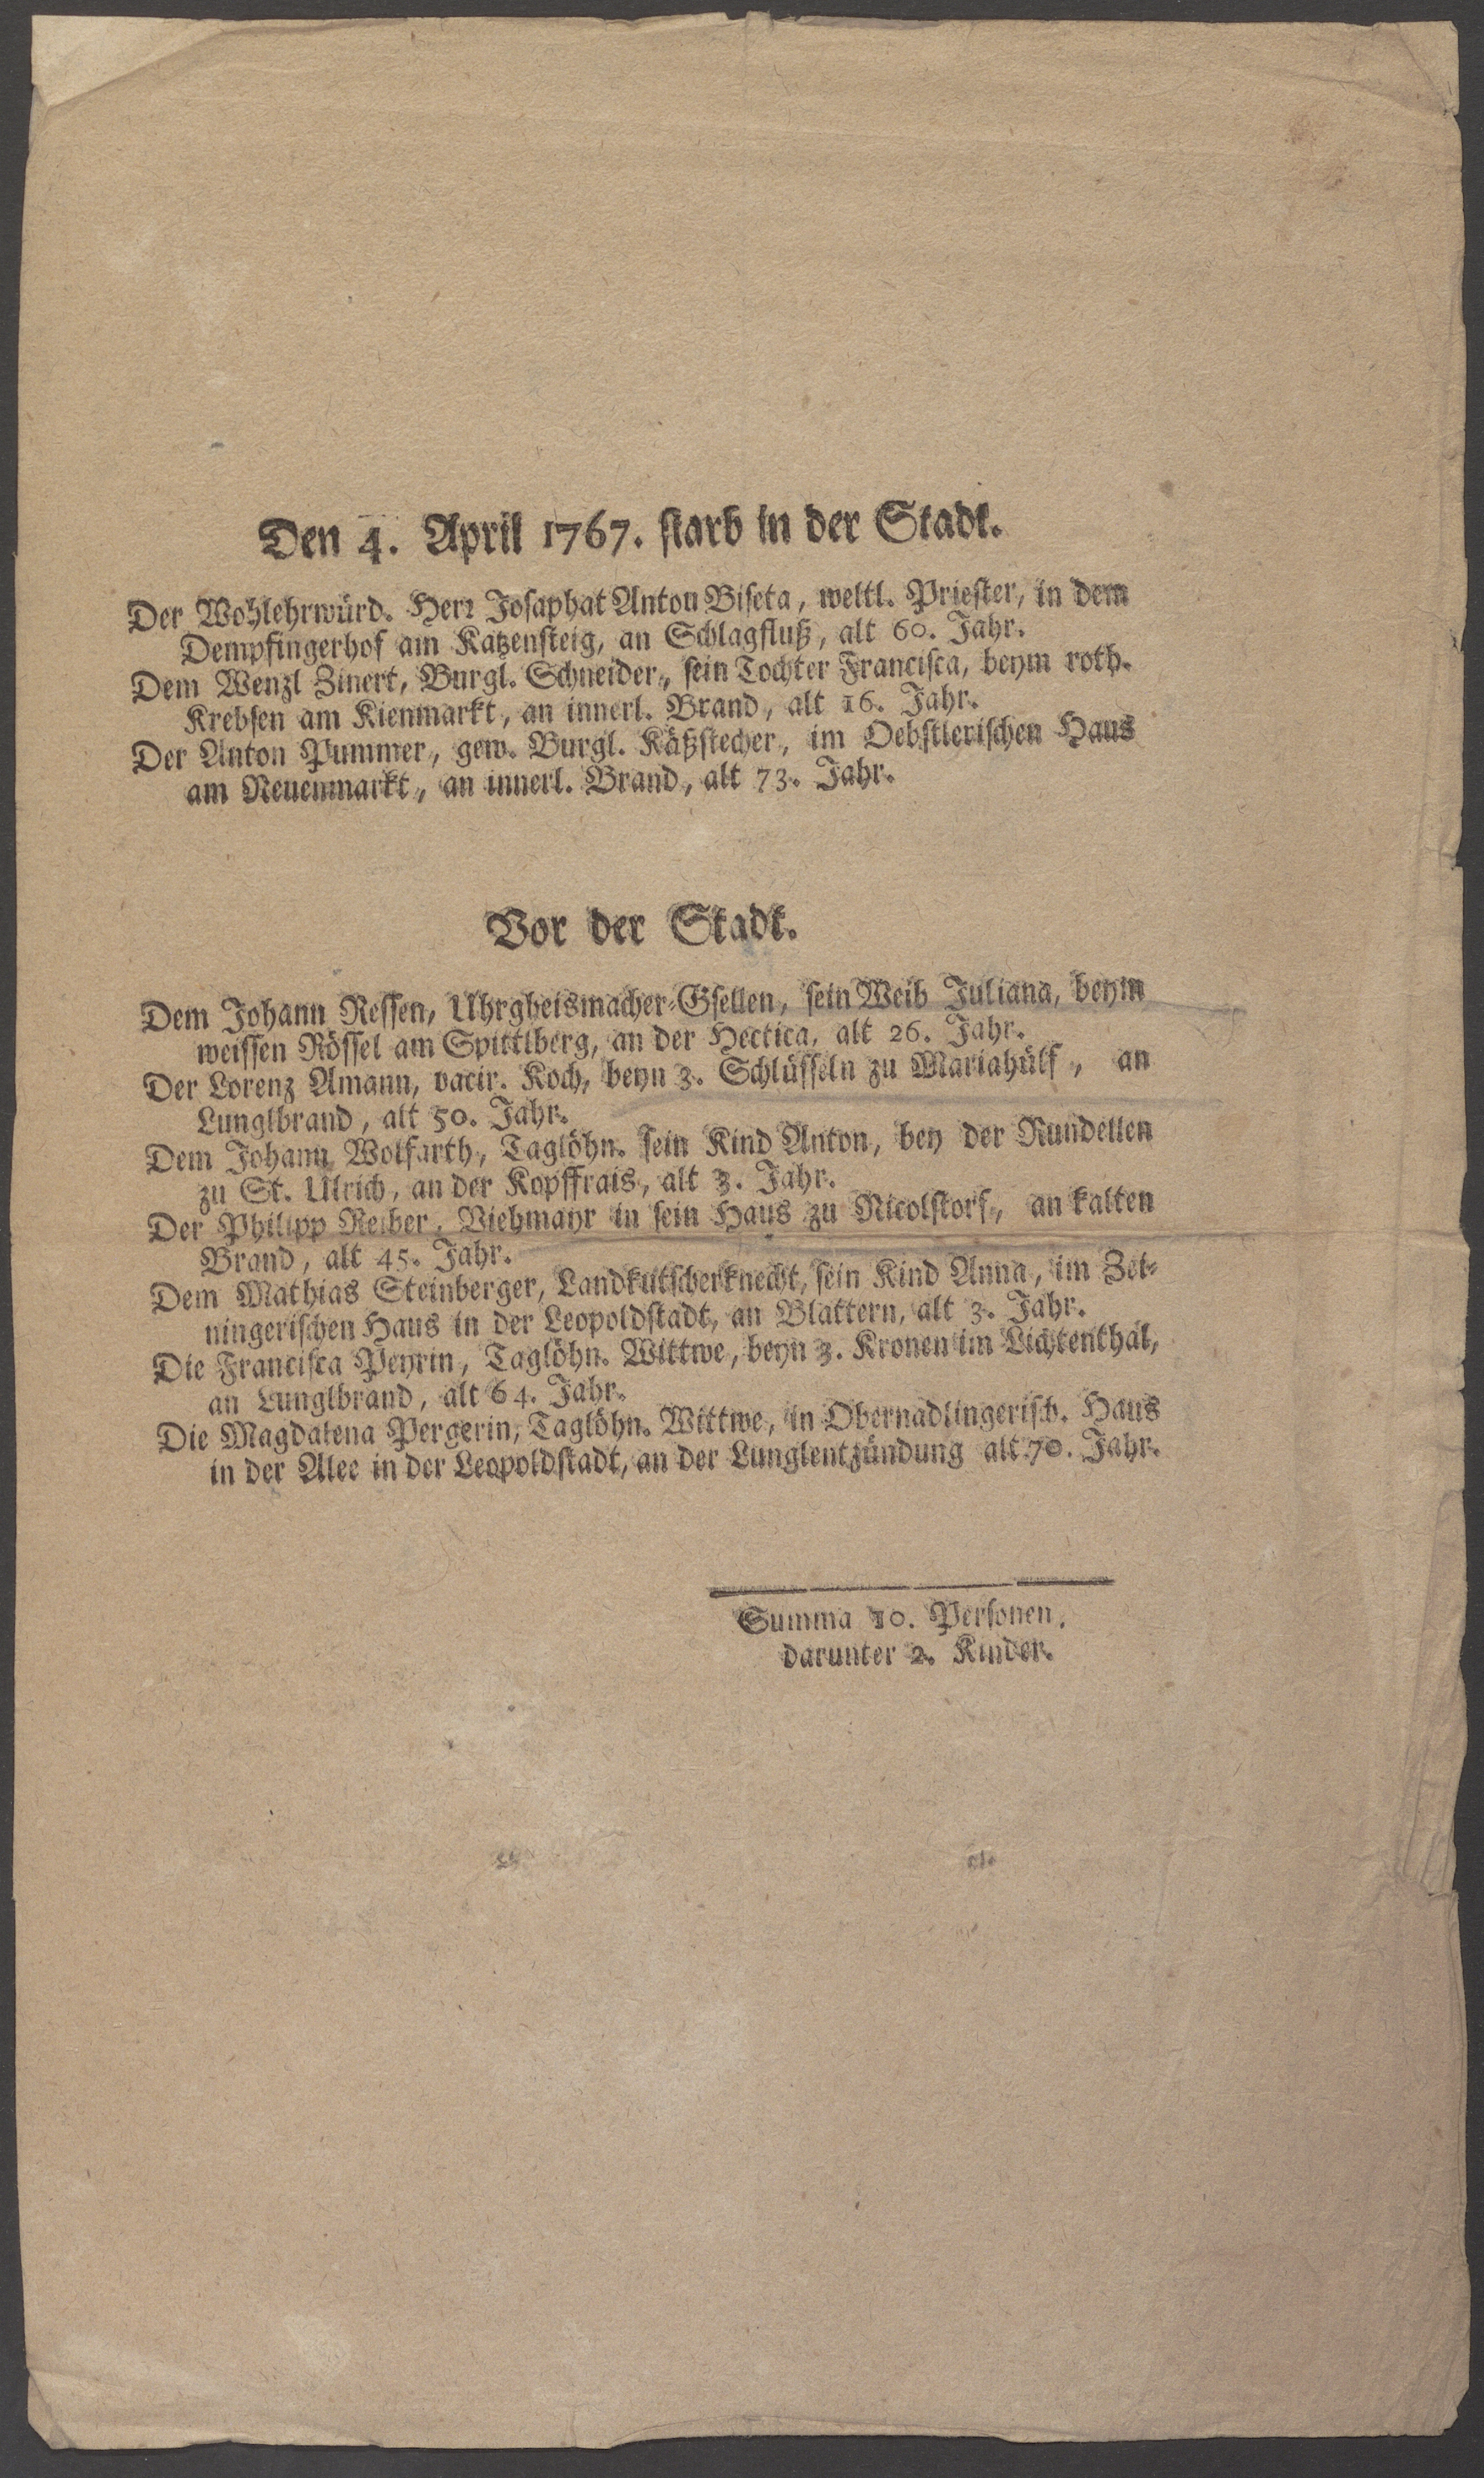 Den 4. April 1767. starb in der Stadt.
Der Wohlehrwürd. Herr Josaphat Anton Biseta, weltl. Priester, in dem
Dempfingerhof am Katzensteig, an Schlagfluß, alt 60. Jahr.
Dem Wenzl Zinert, Burgl. Schneider, sein Tochter Francisca, beym roth.
Krebsen am Kienmarkt, an innerl. Brand, alt 16. Jahr.
Der Anton Pummer, gew. Burgl. Käßstecher, im Oebstlerischen Haus
am Neuenmarkt, an innerl. Brand, alt 73. Jahr.
Vor der Stadt.
Dem Johann Ressen, Uhrgheismacher-Gsellen, sein Weib Juliana, beym
weissen Rössel am Spittlberg, an der Hectica, alt 26. Jahr.
Der Lorenz Amann, vacir. Koch, beyn 3. Schlüsseln zu Mariahülf, an
Lunglbrand, alt 50. Jahr.
Dem Johann Wolfarth, Taglöhn. sein Kind Anton, bey der Rundellen
zu St. Ulrich, an der Kopffrais, alt 3. Jahr.
Der Philipp Reiber, Viehmayr in sein Haus zu Nicolstorf, an kalten
Brand, alt 45. Jahr.
Dem Mathias Steinberger, Landkutscherknecht, sein Kind Anna, im Zei-
ningerischen Haus in der Leopoldstadt, an Blattern, alt 3. Jahr.
Die Francisca Peyrin, Taglöhn. Wittwe, beyn 3. Kronen im Lichtenthal,
an Lunglbrand, alt 64. Jahr.
Die Magdalena Pergerin, Taglöhn. Wittwe, in Obernadlingerisch. Haus
in der Alee in der Leopoldstadt, an der Lunglentzündung alt 70. Jahr.
Summa 10. Personen,
darunter 2. Kinder.